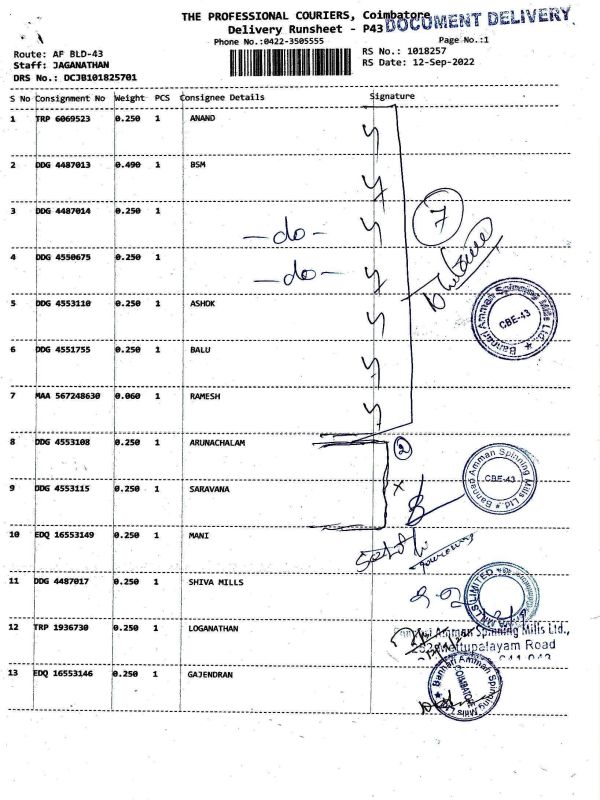 THE PROFESSIONAL COURIERS, Coimbatore
DOCUMENT DELIVERY
Delivery Runsheet - P43
Phone No.:0422-3505555
Page No.:1
Route: AF BLD-43
RS No.: 1018257
Staff: JAGANATHAN
RS Date: 12-Sep-2022
DRS No.: DCJB101825701
S No Consignment No Weight PCS Consignee Details Signature
1 TRP 6069523 0.250 1 ANAND
2 DDG 4487013 0.490 1 BSM
3 DDG 4487014 0.250 1 -do-
4 DDG 4550675 0.250 1 -do-
7
5 DDG 4553110 0.250 1 ASHOK
Bannari Amman Spinning Mills Ltd.
CBE-43
6 DDG 4551755 0.250 1 BALU
7 MAA 567248630 0.060 1 RAMESH
8 DDG 4553108 0.250 1 ARUNACHALAM
2
Bannari Amman Spinning Mills Ltd.
CBE-43
9 DDG 4553115 0.250 1 SARAVANA
10 EDQ 16553149 0.250 1 MANI
11 DDG 4487017 0.250 1 SHIVA MILLS
MILLS LIMITED
12 TRP 1936730 0.250 1 LOGANATHAN
Bannari Amman Spinning Mills Ltd.,
252 Mettupalayam Road
13 EDQ 16553146 0.250 1 GAJENDRAN
Bannari Amman Spinning Mills Ltd.
COIMBATORE